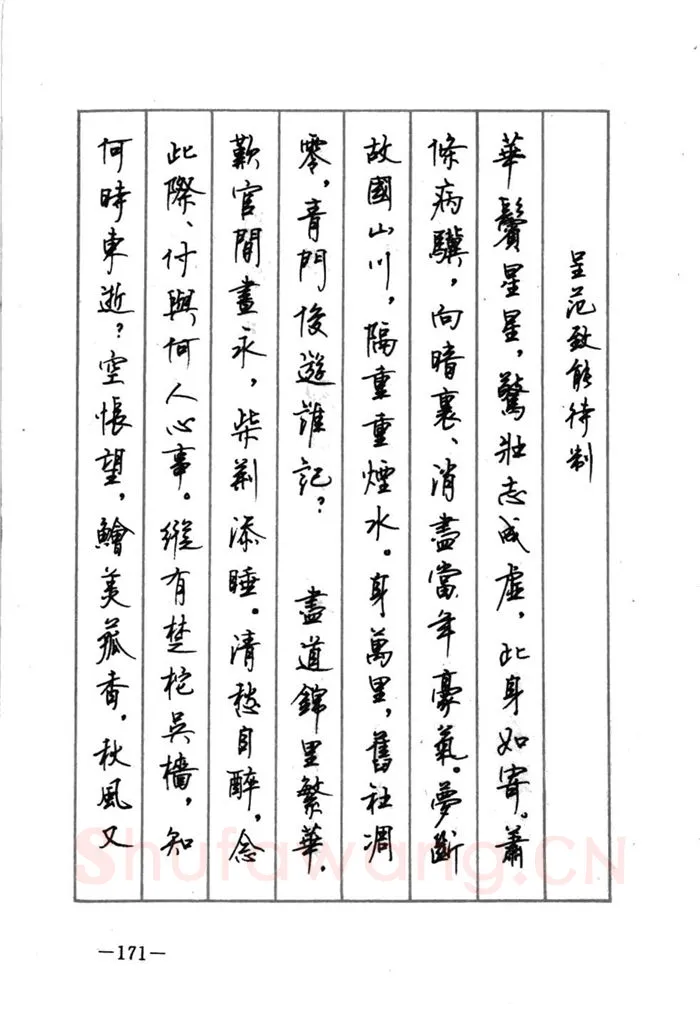 呈范致能待制
華鬢星星，驚壯志成虛，此身如寄。蕭
條病驥，向暗裏、消盡當年豪氣。夢斷
故國山川，隔重重煙水。身萬里，舊社凋
零，青門俊遊誰記？　盡道錦里繁華，
歎官閒晝永，柴荆添睡。清愁自醉，念
此際、付與何人心事。縱有楚柁吳檣，知
何時東逝？空悵望，鱠美菰香，秋風又
Shufawang.CN
—171—